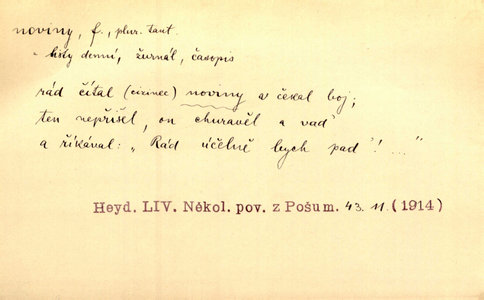 noviny, f., plur. tant.
- listy denní, žurnál, časopis
rád čítal (cizinec) noviny a čekal boj;
ten nepřišel, on churavěl a vad'
a říkával: „Rád účelně bych pad'! ..."
Heyd. LIV. Někol. pov. z Pošum. 43. 11. (1914)